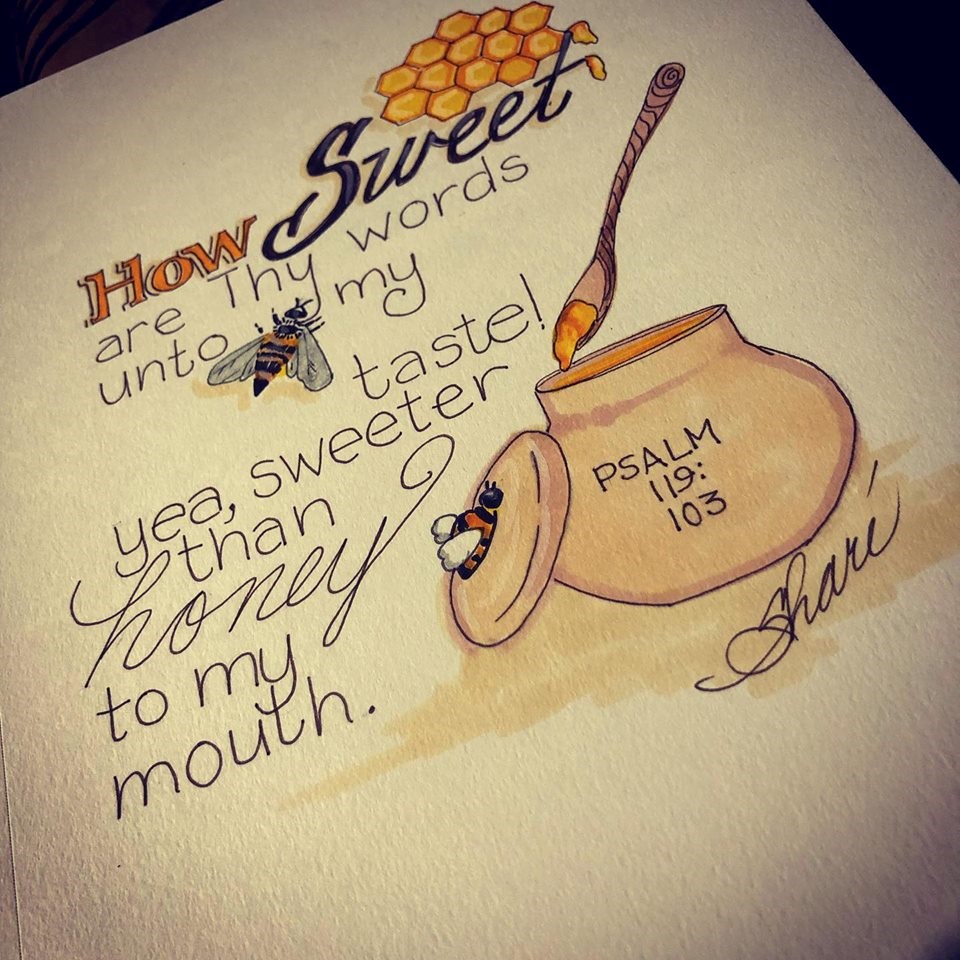 How Sweet
are Thy words
unto my
taste!
yea, sweeter
than
honey
to my
mouth.
PSALM
119:
103
Sharí